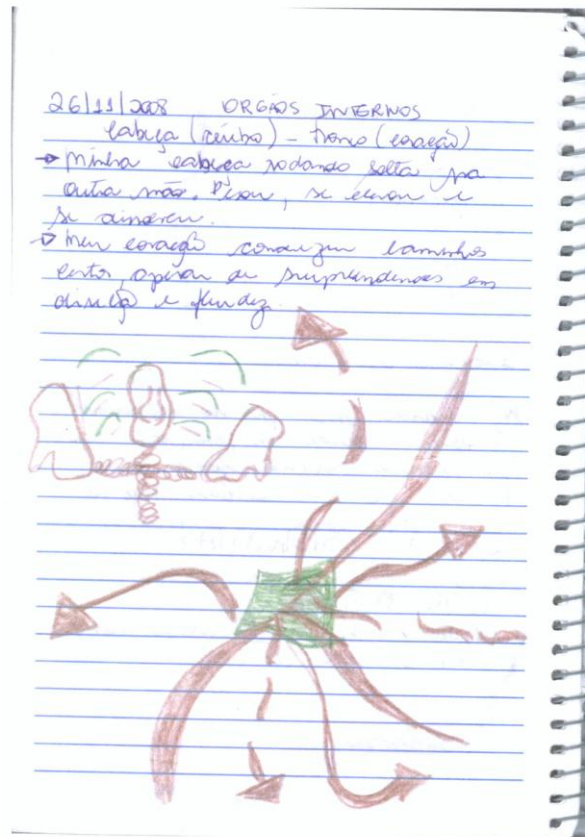 26/11/2008 ORGÃOS INTERNOS
Cabeça (cérebro) – tronco (coração)
→ Minha cabeça rodando solta na
outra mão. Pesou, se elevou e
se
→ Meu coração conduziu caminhos
certos, apesar de surpreendentes em
direção e fluidez.